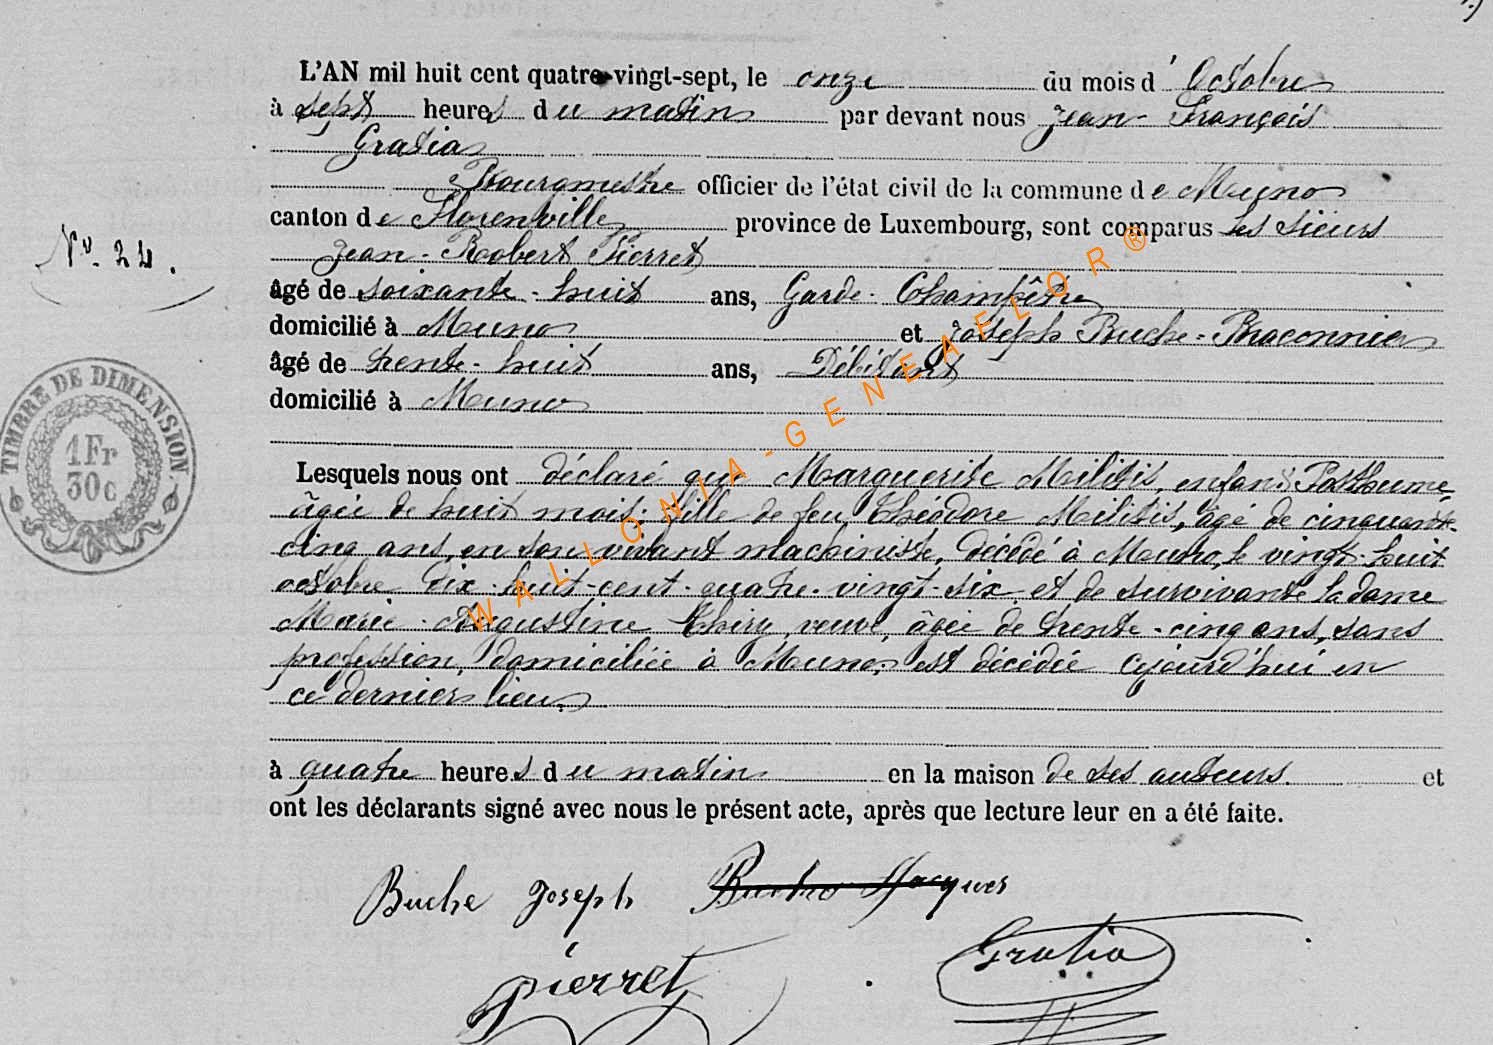 L'AN mil huit cent quatre-vingt-sept, le onze du mois d' Octobre
à sept heures du matin par devant nous Jean-François
Gratia
Bourgmestre officier de l'état civil de la commune de Muno
canton de Florenville province de Luxembourg, sont comparus les sieurs
Jean-Robert Pierret
N° 24.
âgé de soixante-huit ans, Garde-Champêtre
domicilié à Muno et Joseph Buche-Braconnier
âgé de trente-huit ans, Débitant
domicilié à Muno
TIMBRE DE DIMENSION
1 Fr
30c
Lesquels nous ont déclaré que Marguerite Militis, enfant Posthume,
âgée de huit mois, fille de feu, Théodore Militis, âgé de cinquante-
cinq ans, en son vivant machiniste, décédé à Muno, le vingt-huit
octobre dix-huit-cent-quatre-vingt-six et de survivante la dame
Marie-Augustine Thiry, veuve, âgée de trente-cinq ans, sans
profession, domiciliée à Muno, est décédée cejourd'hui en
ce dernier lieu,
à quatre heures du matin en la maison de ses auteurs. et
ont les déclarants signé avec nous le présent acte, après que lecture leur en a été faite.
Buche Joseph Jacques
Pierret
Gratia
WALLONIA-GENEAELOR®